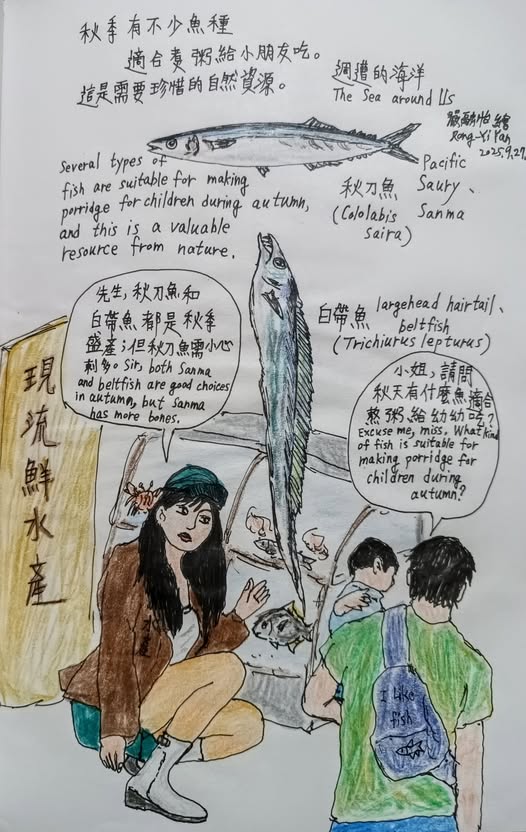 秋季有不少魚種
適合煮粥給小朋友吃。
這是需要珍惜的自然資源。
週遭的海洋
The Sea around Us
Rong-Yi Yan
2025.9.27
Several types of
fish are suitable for making
porridge for children during autumn,
and this is a valuable
resource from nature.
Pacific
Saury、
Sanma
秋刀魚
(Cololabis
saira)
白帶魚 largehead hairtail、
beltfish
(Trichiurus lepturus)
先生,秋刀魚和
白帶魚都是秋季
盛產;但秋刀魚需小心
刺多。Sir, both Sanma
and beltfish are good choices
in autumn, but Sanma
has more bones.
小姐,請問
秋天有什麼魚適合
熬粥給幼幼吃?
Excuse me, miss. What kind
of fish is suitable for
making porridge for
children during
autumn?
現流鮮水產
I like
fish